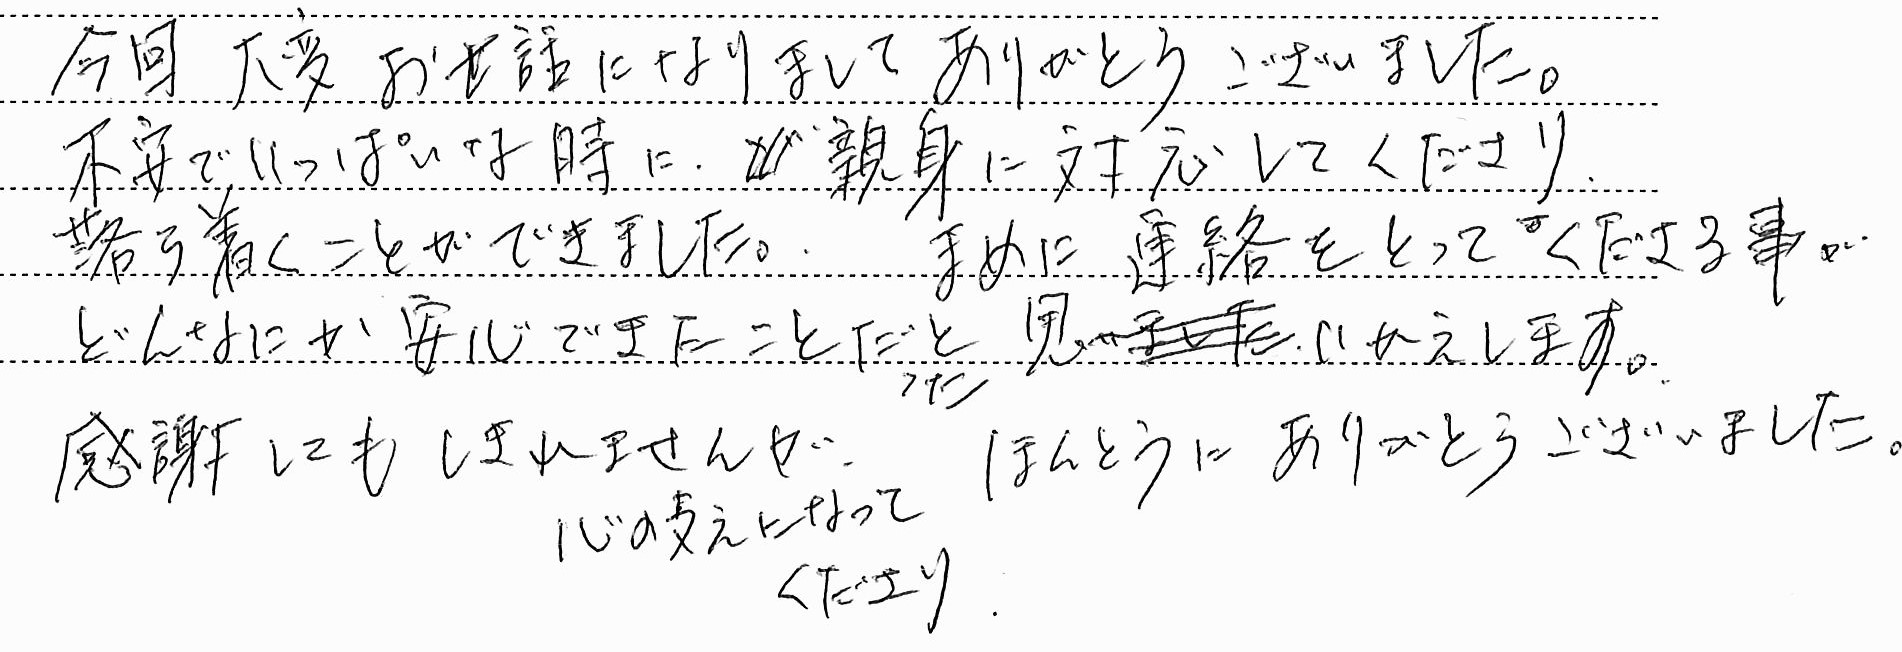 今回 大変 お世話になりまして ありがとう ございました。
不安でいっぱいな時に、親身に対応してくださり、
落ち着くことができました。 まめに 連絡をとってくださる事が
どんなにか 安心できたことだと 思いかえします。
った
感謝しても しきれませんが、 ほんとうに ありがとうございました。
心の支えになって
くださり、